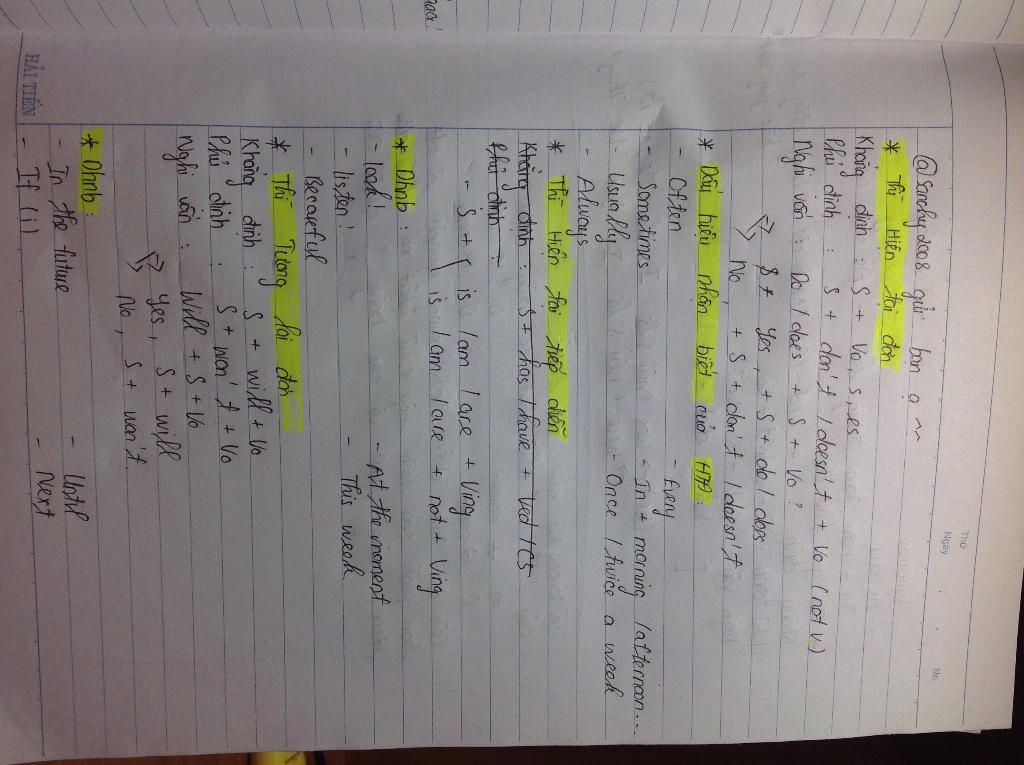 Thứ
Ngày
No.
@Sancky2008 gửi bạn ạ ~~
* Thì Hiện tại đơn
Khẳng định : S + Vo, s, es
Phủ định : S + don't / doesn't + Vo (not V.)
Nghi vấn : Do / does + S + Vo ?
S + Yes, + S + do / does
No, + S + don't / doesn't
* Dấu hiệu nhận biết của HTĐ :
- Often - Every
- Sometimes - In + morning / afternoon...
- Usually - Once / twice a week
- Always
* Thì Hiện tại tiếp diễn
Khẳng định : S + has / have + Ved / C3
Phủ định :
- S + is / am / are + Ving
is / am / are + not + Ving
* Dhnb :
- look ! - At the moment
- listen ! - This week
- Becareful
* Thì Tương lai đơn
Khẳng định : S + will + Vo
Phủ định : S + won't + Vo
Nghi vấn : Will + S + Vo
Yes, S + will
No, S + won't
* Dhnb :
- In the future - Until
- If (1) - Next
HẢI TIẾN